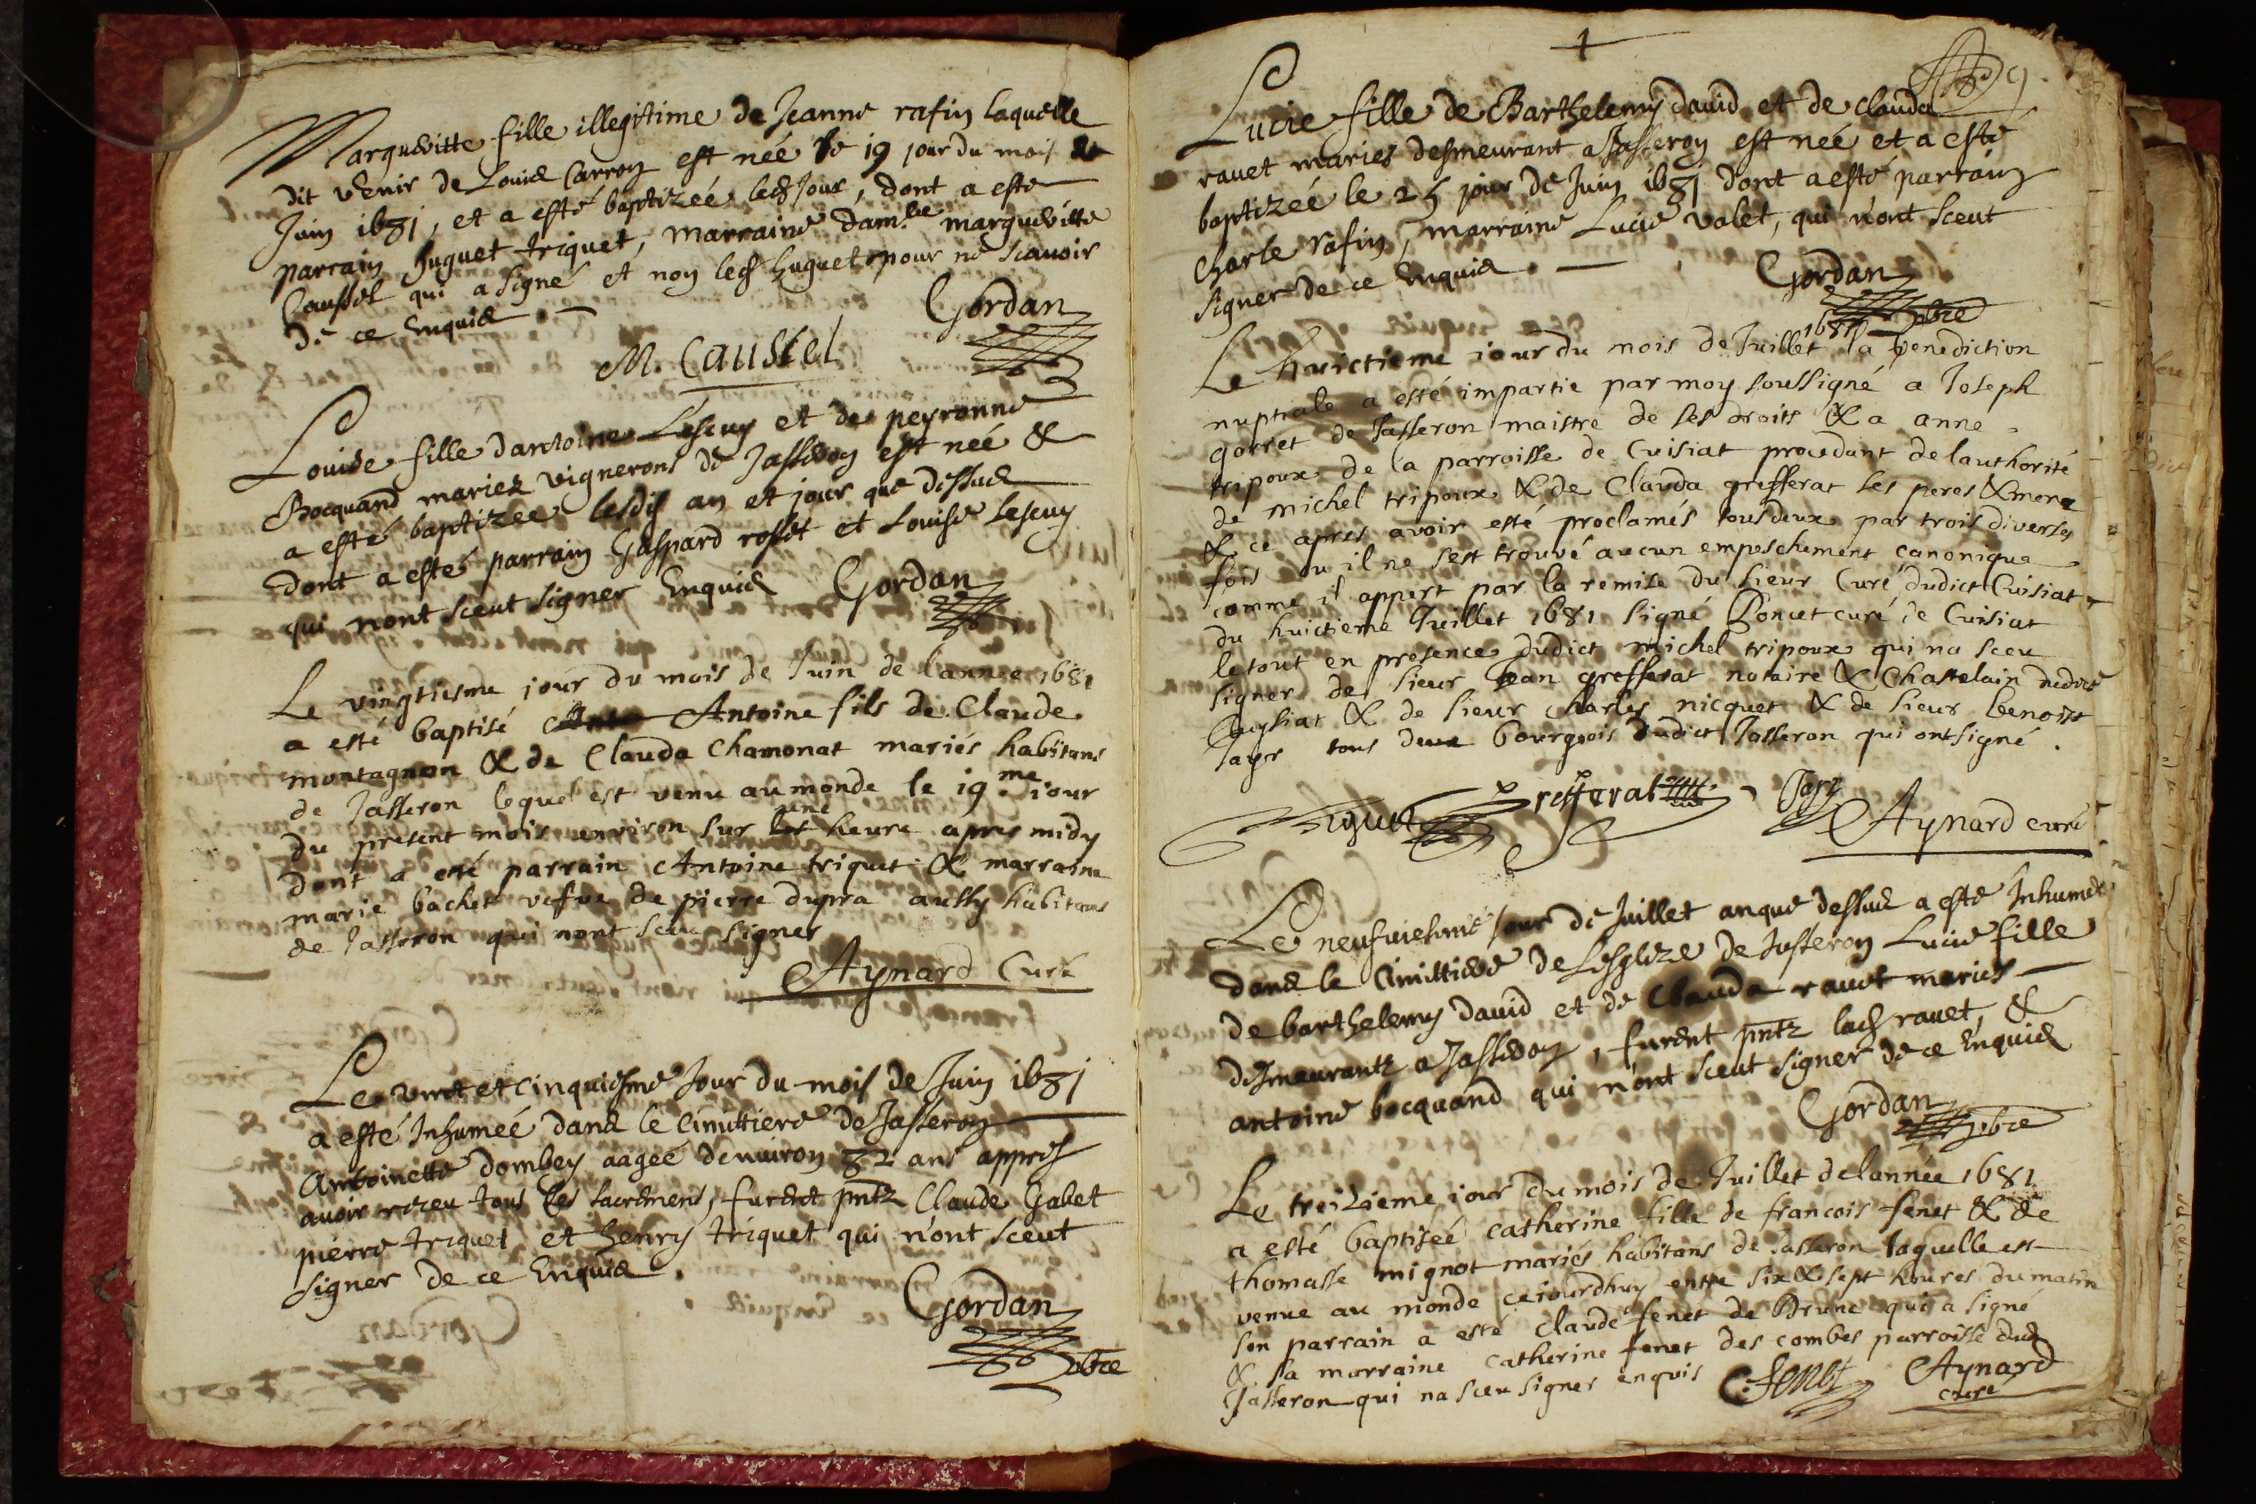 Margueritte fille illegitime de Jeanne rafin laquelle
dit venir de Louis Carron est née le 19 jour du mois de
Juin 1681, et a esté baptizeé led Jour, dont a esté
parrain huguet triquet, marraine dam.lle margueritte
Caussel qui a signé et non led huguet pour ne scavoir
de ce Enquis
Gordan
M. Caussel
Louise fille dantoine Lescuy et de peyronne
Bocquand mariez vignerons de Jasseron est née &
a esté baptizee lesdis an et jour que dessus
dont a esté parrain Gaspard rosset et Louise Lescuy
qui nont sceut signer Enquis Gordan
Le vingtiesme jour du mois de Juin de lannee 1681
a esté baptisé Antoine fils de Claude
montagnon & de Clauda Chamonat mariés habitans
de Jasseron lequel est venu au monde le 19.me jour
du present mois environ sur une heure apres midy
dont a esté parrain Antoine triquet & marraine
marie bachet vefve de pierre dupra aussy habitans
de Jasseron qui nont sceu signer
Aynard Curé
Le vint et cinquiesme Jour du mois de Juin 1681
a esté Inhumeé dans le Cimittiere de Jasseron
Antoinette dombey aageé denviron 82 ans appres
avoir receu tous les sacremens, furent pntz Claude Gabet
pierre triquet et henry triquet qui n'ont sceut
signer de ce Enquis.
Gordan
pbre
9.
Lucie fille de Barthelemy david et de clauda
ravet mariez desmeurant a Jasseron est née et a esté
baptizeé le 25 jour de Juin 1681 dont a esté parrain
Charle rafin, marraine Lucie valet, qui n'ont sceut
signer de ce Enquis.
Gordan
pbre
Le huictieme iour du mois de Juillet 1681 la benediction
nuptiale a esté impartie par moy soussigné a Joseph
gorret de Jasseron maistre de ses droits & a anne
tripoux de la parroisse de Cuisiat procedant de lauthorité
de michel tripoux & de Clauda grefferat ses peres & mere
& ce apres avoir esté proclamés tous deux par trois diverses
fois ou il ne s'est trouvé aucun empeschement canonique
comme il appert par la remise du sieur Curé dudict Cuisiat
du huictieme Juillet 1681 signé Poncet curé de Cuisiat
le tout en presence dudict michel tripoux qui na sceu
signer de sieur Jean grefferat notaire & Chastelain dudict
Cuysiat & de sieur Charles nicquet & de sieur benoist
Jayr tous deux bourgeois dudict Jasseron qui ont signé.
Grefferat
Aynard curé
Le neufviesme Jour de Juillet an que dessus a esté Inhumeé
dans le Cimittiere de Lesglize de Jasseron Lucie fille
de barthelemy david et de Clauda ravet mariés
desmeurantz a Jasseron, furent pntz lad ravet, &
antoine bocquand qui n'ont sceut signer de ce Enquis
Gordan
pbre
Le treizieme iour du mois de Juillet de lannée 1681
a esté baptiseé catherine fille de francois fenet & de
thomasse mignot mariés habitans de Jasseron laquelle est
venue au monde cejourdhuy entre six & sept heures du matin
son parrain a esté claude fenet de Brune qui a signé
& sa marraine catherine fenet des combes parroisse dud
Jasseron qui na sceu signer enquis C. fenet Aynard
curé